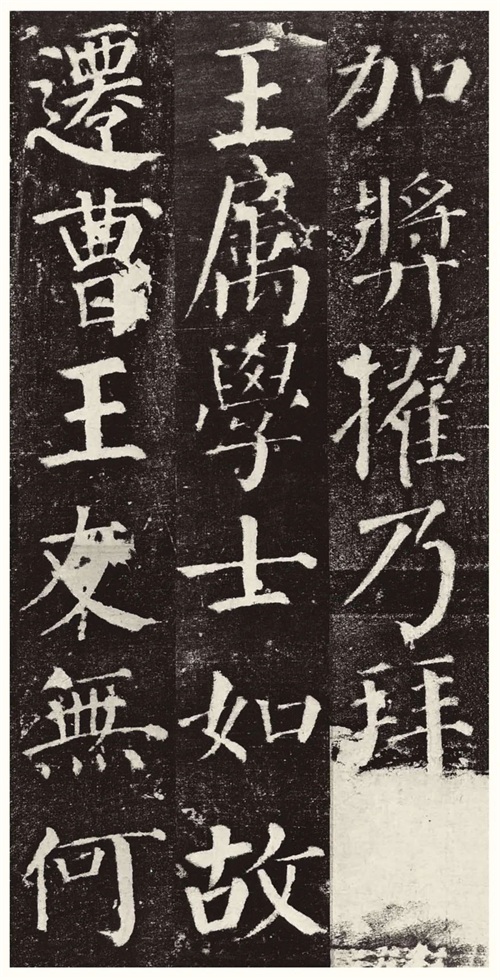 加奬擢乃拜
王属學士如故
遷曹王友無何